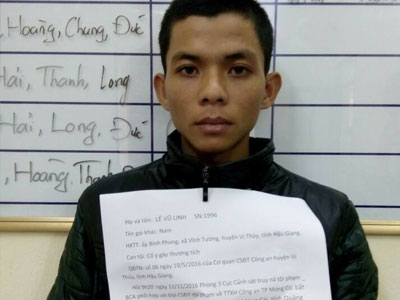 , Hoàng, Chung, Đức
Hải, Thanh, Long
Hải, Long, Đức
, Hoàng, Thanh
Họ và tên: LÊ VŨ LINH SN:1996
Tên gọi khác: Nam
HKTT: ấp Bình Phong, xã Vĩnh Tường, huyện Vị Thủy, tỉnh Hậu Giang.
Can tội: Cố ý gây thương tích
QĐTN: số 06 ngày 19/5/2016 của Cơ quan CSĐT Công an huyện Vị
Thủy, tỉnh Hậu Giang.
Hồi 9h30 ngày 12/11/2016 Phòng 3 Cục Cảnh sát truy nã tội phạm
BCA phối hợp với Đội CSĐT tội phạm về TTXH Công an TP Móng Cái bắt
Quảng